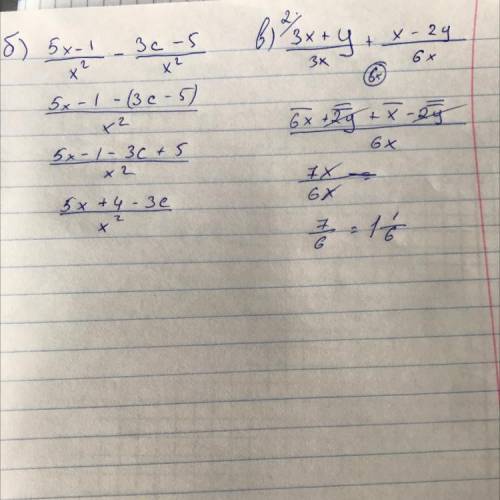 б) (5x-1)/x² - (3c-5)/x²
(5x-1-(3c-5))/x²
(5x-1-3c+5)/x²
(5x+4-3c)/x²
в) 2/ (3x+y)/3x + (x-2y)/6x
6x
(6x+2y+x-2y)/6x
7x/6x =
7/6 = 1 1/6